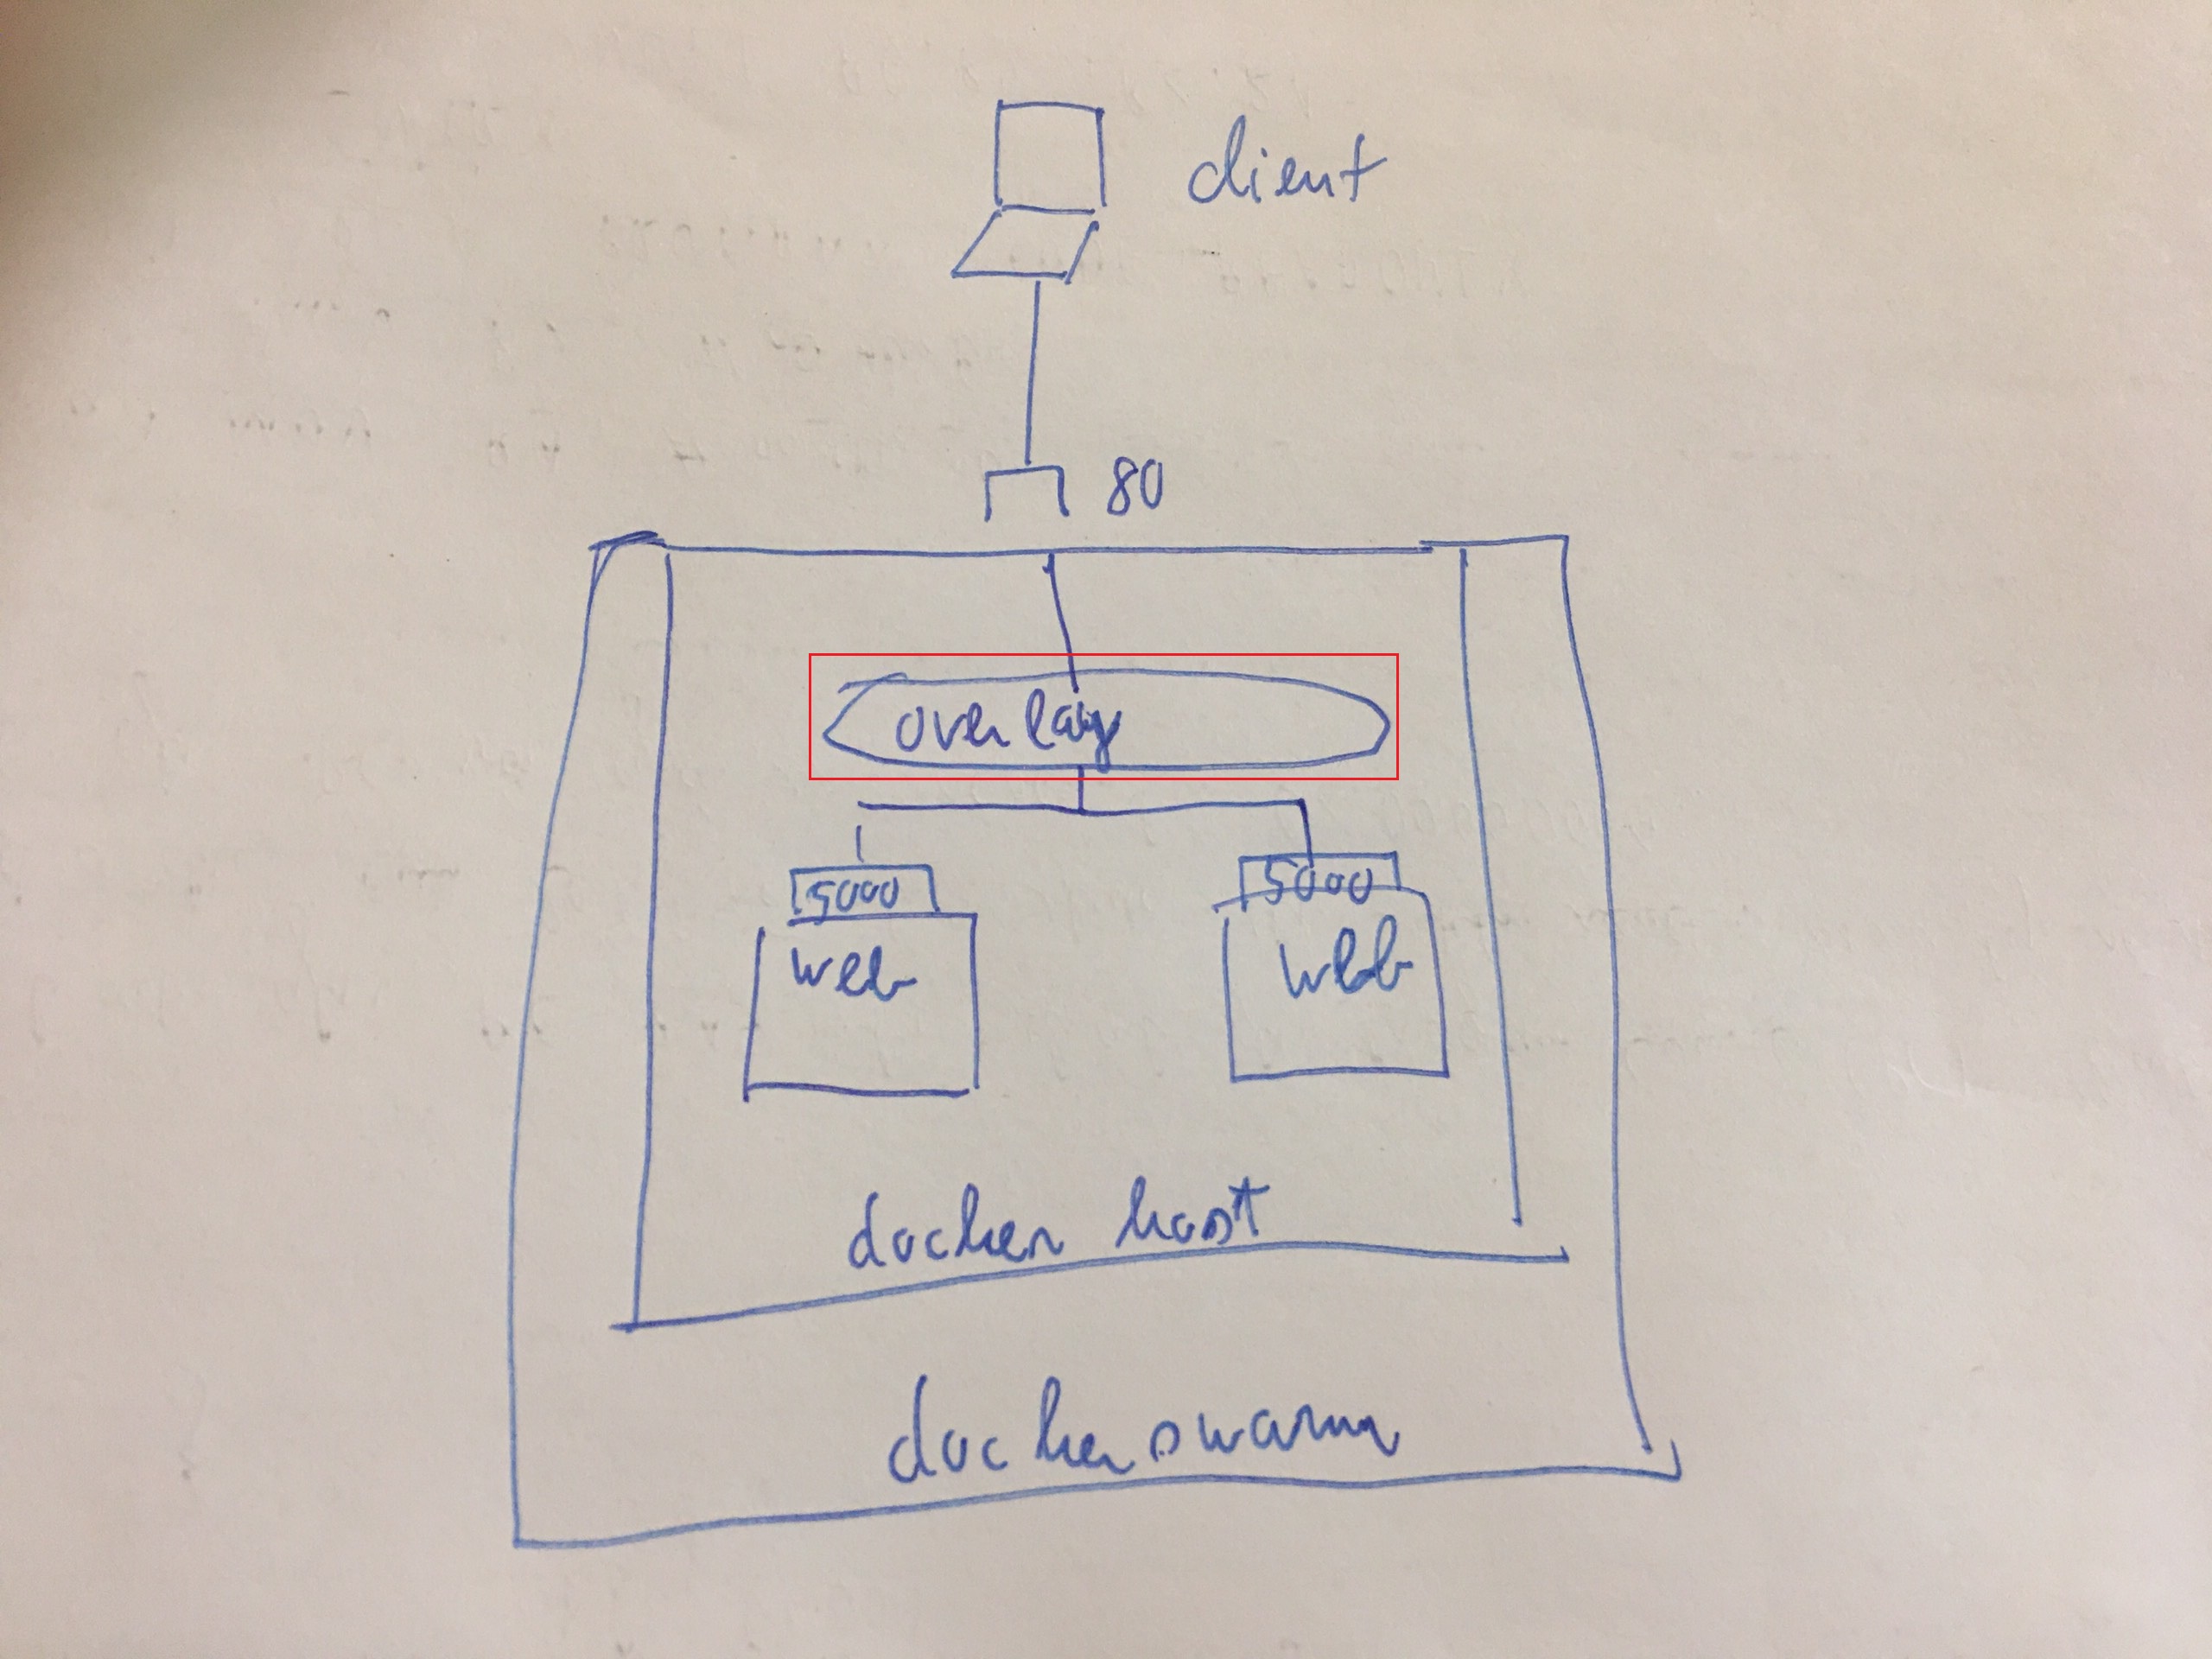 client
80
overlay
5000 5000
web web
docker host
docker swarm